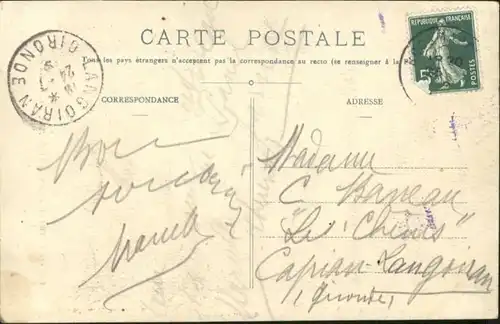 CARTE POSTALE
Tous les pays étrangers n'acceptent pas la correspondance au recto (se renseigner à la
CORRESPONDANCE
ADRESSE
RÉPUBLIQUE FRANÇAISE
POSTES
LANGOIRAN
GIRONDE
24
Bon
souvenir
Madame
C.
"Les Chênes"
Capian-Langoiran
(Gironde)